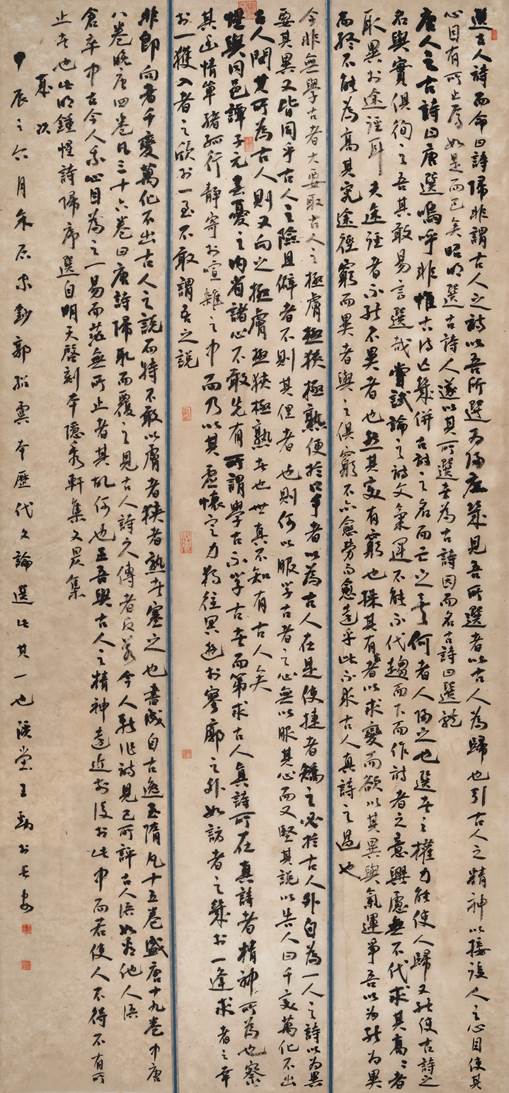 選古人詩而命曰詩歸非謂古人之詩以吾所選為歸庶幾見吾所選者以古人為歸也引古人之精神以接後人之心目使其
心目有所止焉如是而已矣昭明選古詩人遂以其所選者為古詩因而名古詩曰選體
唐人之古詩曰唐選嗚呼非惟古詩亡幾併古詩之名而亡之矣何者人歸之也選者之權力能使人歸又能使古詩之
名與實俱徇之吾其敢易言選哉嘗試論之詩文氣運不能不代趨而下而作詩者之意興慮無不代求其高高者
取異於途徑耳夫途徑者不能不異者也然其變有窮也操其有窮者以求變而欲以其異與氣運爭吾以為能為異
而終不能為高其究途徑窮而異者與之俱窮不亦愈勞而愈遠乎此不求古人真詩之過也
今非無學古者大要取古人之極膚極狹極熟便於口手者以為古人在是使捷者矯之必於古人外自為一人之詩以為異
要其異又皆同乎古人之險且僻者不則其俚者也則何以服學古者之心無以服其心而又堅其說以告人曰千變萬化不出
古人問其所為古人則又向之極膚極狹極熟者也世真不知有古人矣
惺與同邑譚子元春憂之內省諸心不敢先有所謂學古不學古者而第求古人真詩所在真詩者精神所為也察
其幽情單緒孤行靜寄於喧雜之中而乃以其虛懷定力獨往冥遊於寥廓之外如訪者之幾於一逢求者之幸
於一獲入者之欣於一至不敢謂吾之說
非即向者千變萬化不出古人之說而特不敢以膚者狹者熟者塞之也書成自古逸至隋凡十五卷盛唐十九卷中唐
八卷晚唐四卷凡三十六卷曰唐詩歸取而覆之見古人詩久傳者反若今人新作詩見己所評古人語如看他人語
倉卒中古今人我心目為之一易而茫無所止者其故何也正吾與古人之精神遠近前後於此中而若使人不得不有所
止者也此明鍾惺詩歸序選自明天啓刻本隱秀軒集文昃集
歲次
甲辰之六月 鈔郭紹虞本歷代文論選此其一也 堂王 書長安